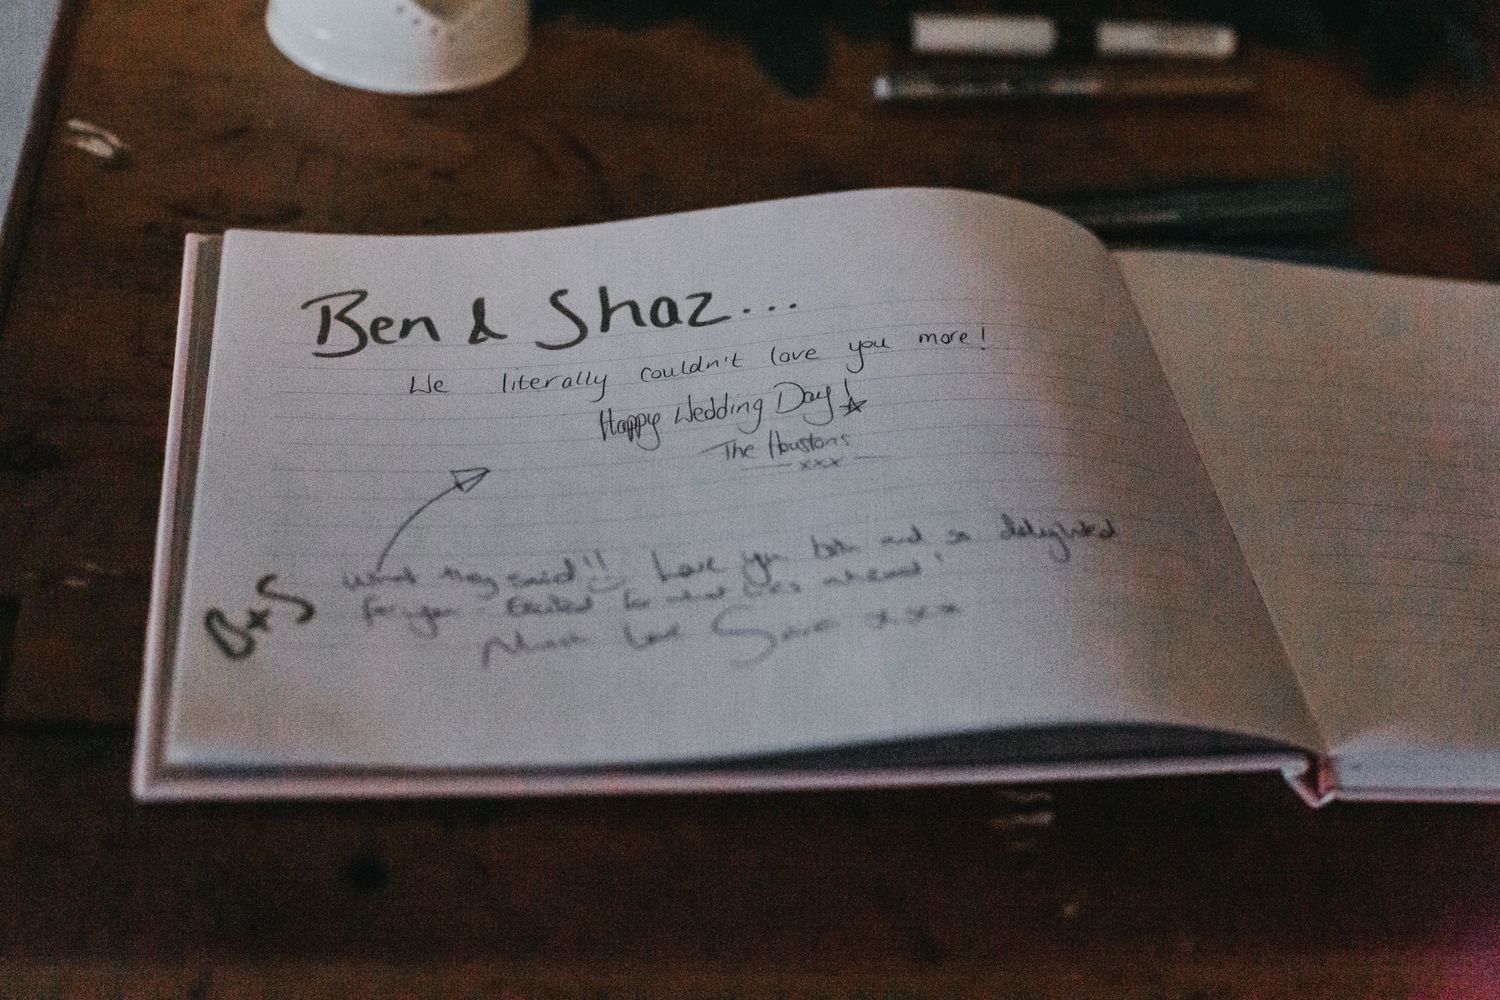 Ben & Shaz...
We literally couldn't love you more!
Happy Wedding Day!
The Houstons
xxx
B+S
What they said!! Love you both and so delighted
for you. Excited for what lies ahead!
Much love S xxx